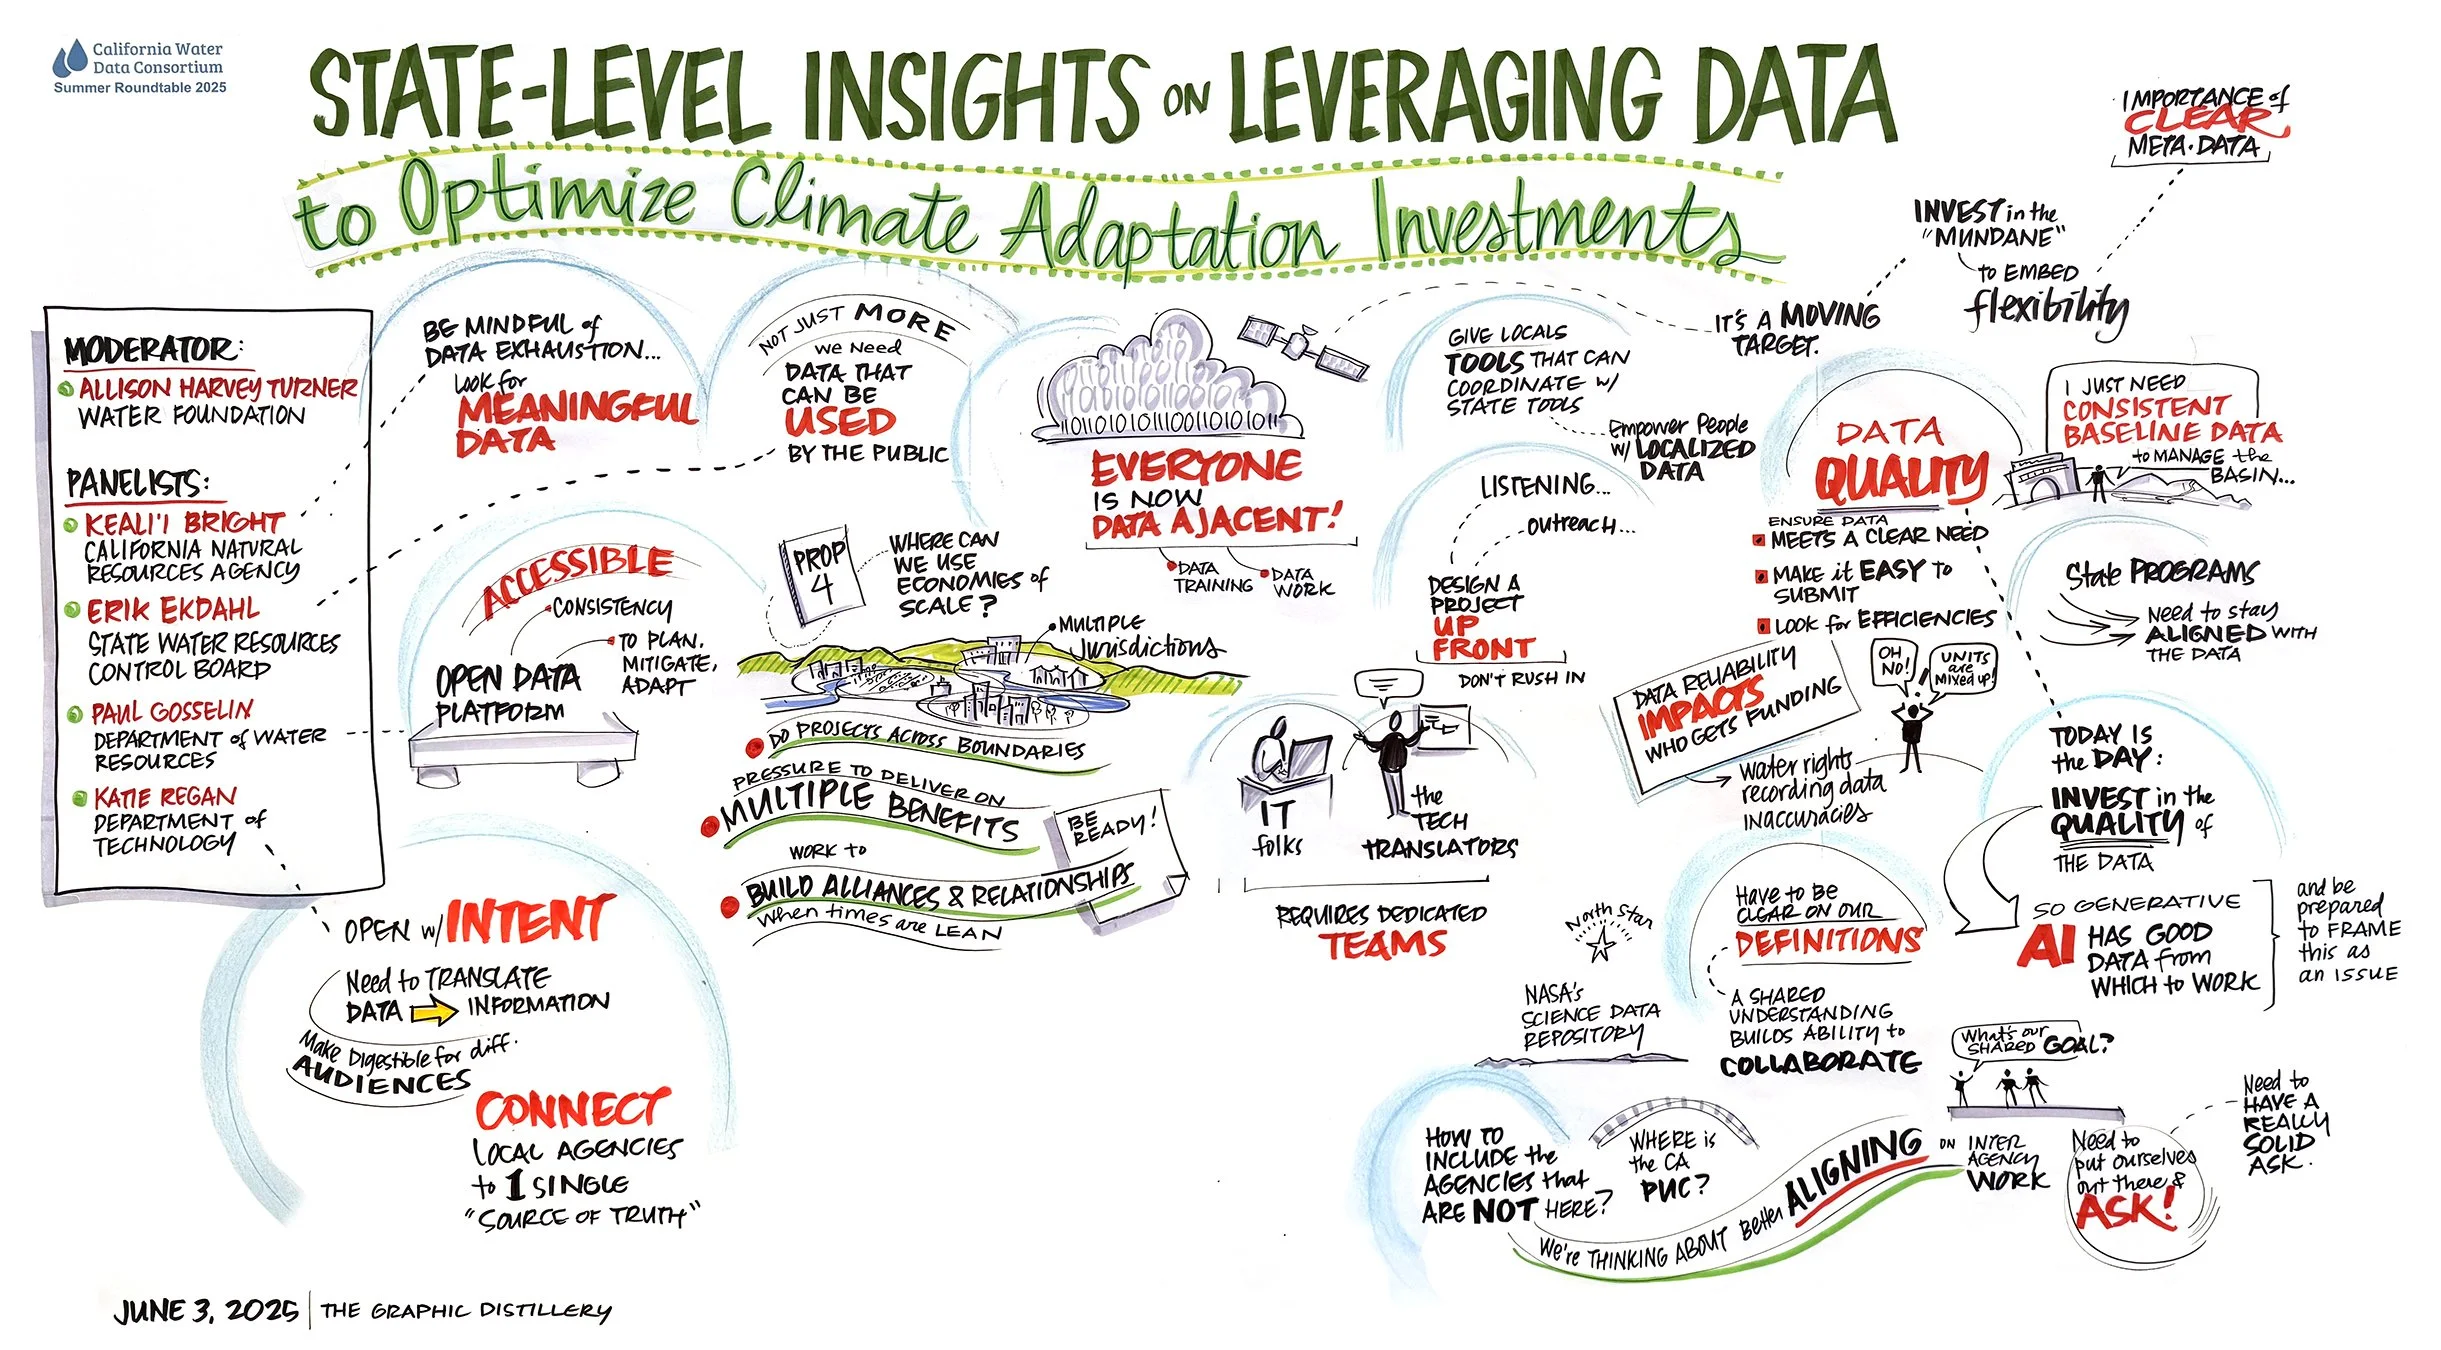 California Water
Data Consortium
Summer Roundtable 2025
STATE-LEVEL INSIGHTS ON LEVERAGING DATA
to Optimize Climate Adaptation Investments
MODERATOR:
ALLISON HARVEY TURNER
WATER FOUNDATION
PANELISTS:
KEALI'I BRIGHT
CALIFORNIA NATURAL
RESOURCES AGENCY
ERIK EKDAHL
STATE WATER RESOURCES
CONTROL BOARD
PAUL GOSSELIN
DEPARTMENT of WATER
RESOURCES
KATIE REGAN
DEPARTMENT of
TECHNOLOGY
BE MINDFUL of
DATA EXHAUSTION...
LOOK for
MEANINGFUL
DATA
NOT JUST MORE
We Need
DATA THAT
CAN BE
USED
BY THE PUBLIC
ACCESSIBLE
CONSISTENCY
TO PLAN,
MITIGATE,
ADAPT
OPEN DATA
PLATFORM
OPEN w/ INTENT
Need to TRANSLATE
DATA INFORMATION
Make Digestible for diff.
AUDIENCES
CONNECT
LOCAL AGENCIES
to 1 SINGLE
"SOURCE OF TRUTH"
PROP
4
WHERE CAN
WE USE
ECONOMIES of
SCALE?
MULTIPLE
Jurisdictions
DO PROJECTS ACROSS BOUNDARIES
PRESSURE TO DELIVER ON
MULTIPLE BENEFITS
WORK to
BUILD ALLIANCES & RELATIONSHIPS
When times are LEAN
BE
READY!
11011010101110011011010101011
EVERYONE
IS NOW
DATA AJACENT!
DATA
TRAINING
DATA
WORK
GIVE LOCALS
TOOLS THAT CAN
COORDINATE w/
STATE TOOLS
Empower People
w/ LOCALIZED
DATA
LISTENING...
outreach...
DESIGN A
PROJECT
UP
FRONT
DON'T RUSH IN
IT
folks
the
TECH
TRANSLATORS
REQUIRES DEDICATED
TEAMS
IT'S A MOVING
TARGET.
INVEST in the
"MUNDANE"
to EMBED
flexibility
IMPORTANCE of
CLEAR
META-DATA
DATA
QUALITY
ENSURE DATA
MEETS A CLEAR NEED
MAKE it EASY to
SUBMIT
LOOK for EFFICIENCIES
I JUST NEED
CONSISTENT
BASELINE DATA
to MANAGE the
BASIN...
State PROGRAMS
Need to stay
ALIGNED WITH
THE DATA
DATA RELIABILITY
IMPACTS
WHO GETS FUNDING
OH
NO!
UNITS
are
MIXED UP!
Water rights
recording data
inaccuracies
TODAY IS
the DAY:
INVEST in the
QUALITY of
THE DATA
SO GENERATIVE
AI HAS GOOD
DATA from
WHICH to WORK
and be
prepared
to FRAME
this as
an ISSUE
North Star
NASA's
SCIENCE DATA
REPOSITORY
Have to BE
CLEAR ON OUR
DEFINITIONS
A SHARED
UNDERSTANDING
BUILDS ABILITY to
COLLABORATE
What's our
SHARED GOAL?
HOW TO
INCLUDE the
AGENCIES that
ARE NOT HERE?
WHERE is
the CA
PUC?
We're THINKING ABOUT Better ALIGNING ON INTER
AGENCY
WORK
Need to
put ourselves
out there &
ASK!
Need to
HAVE A
REALLY
SOLID
ASK.
JUNE 3, 2025 | THE GRAPHIC DISTILLERY